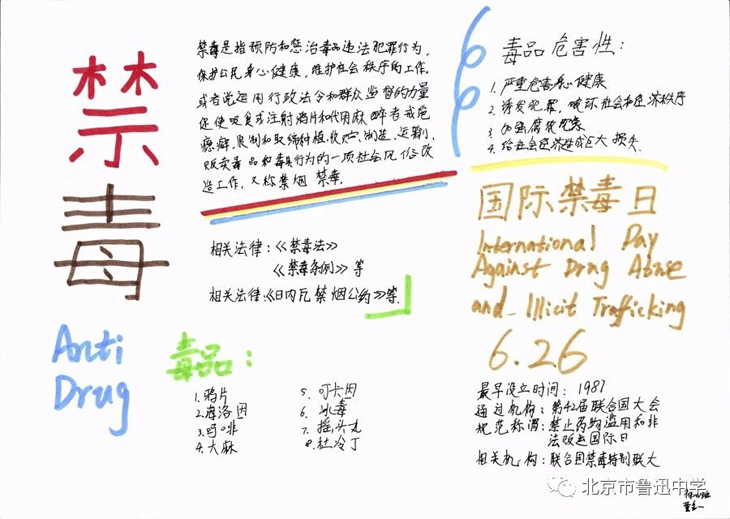 禁
毒
Anti
Drug
禁毒是指预防和惩治毒品违法犯罪行为，
保护公民身心健康，维护社会秩序的工作。
或者说运用行政法令和群众监督的力量
促使吸食或注射鸦片和代用麻醉者戒绝
瘾癖，限制和取缔种植、收贮、制造、运输、
贩卖毒品和毒具行为的一项社会风俗改
造工作，又称禁烟 禁毒。
相关法律：《禁毒法》
《禁毒条例》等
相关法律：《日内瓦禁烟公约》等
毒品：
1.鸦片
2.海洛因
3.吗啡
4.大麻
5.可卡因
6.冰毒
7.摇头丸
8.杜冷丁
毒品危害性：
1.严重危害身心健康
2.诱发犯罪，破坏社会和经济秩序
3.加剧腐败现象
4.给社会经济造成巨大损失.
国际禁毒日
International Day
Against Drug Abuse
and Illicit Trafficking
6.26
最早设立时间：1987
通过机构：第42届联合国大会
规范称谓：禁止药物滥用和非
法贩运国际日
相关机构：联合国禁毒特别联大
北京市鲁迅中学